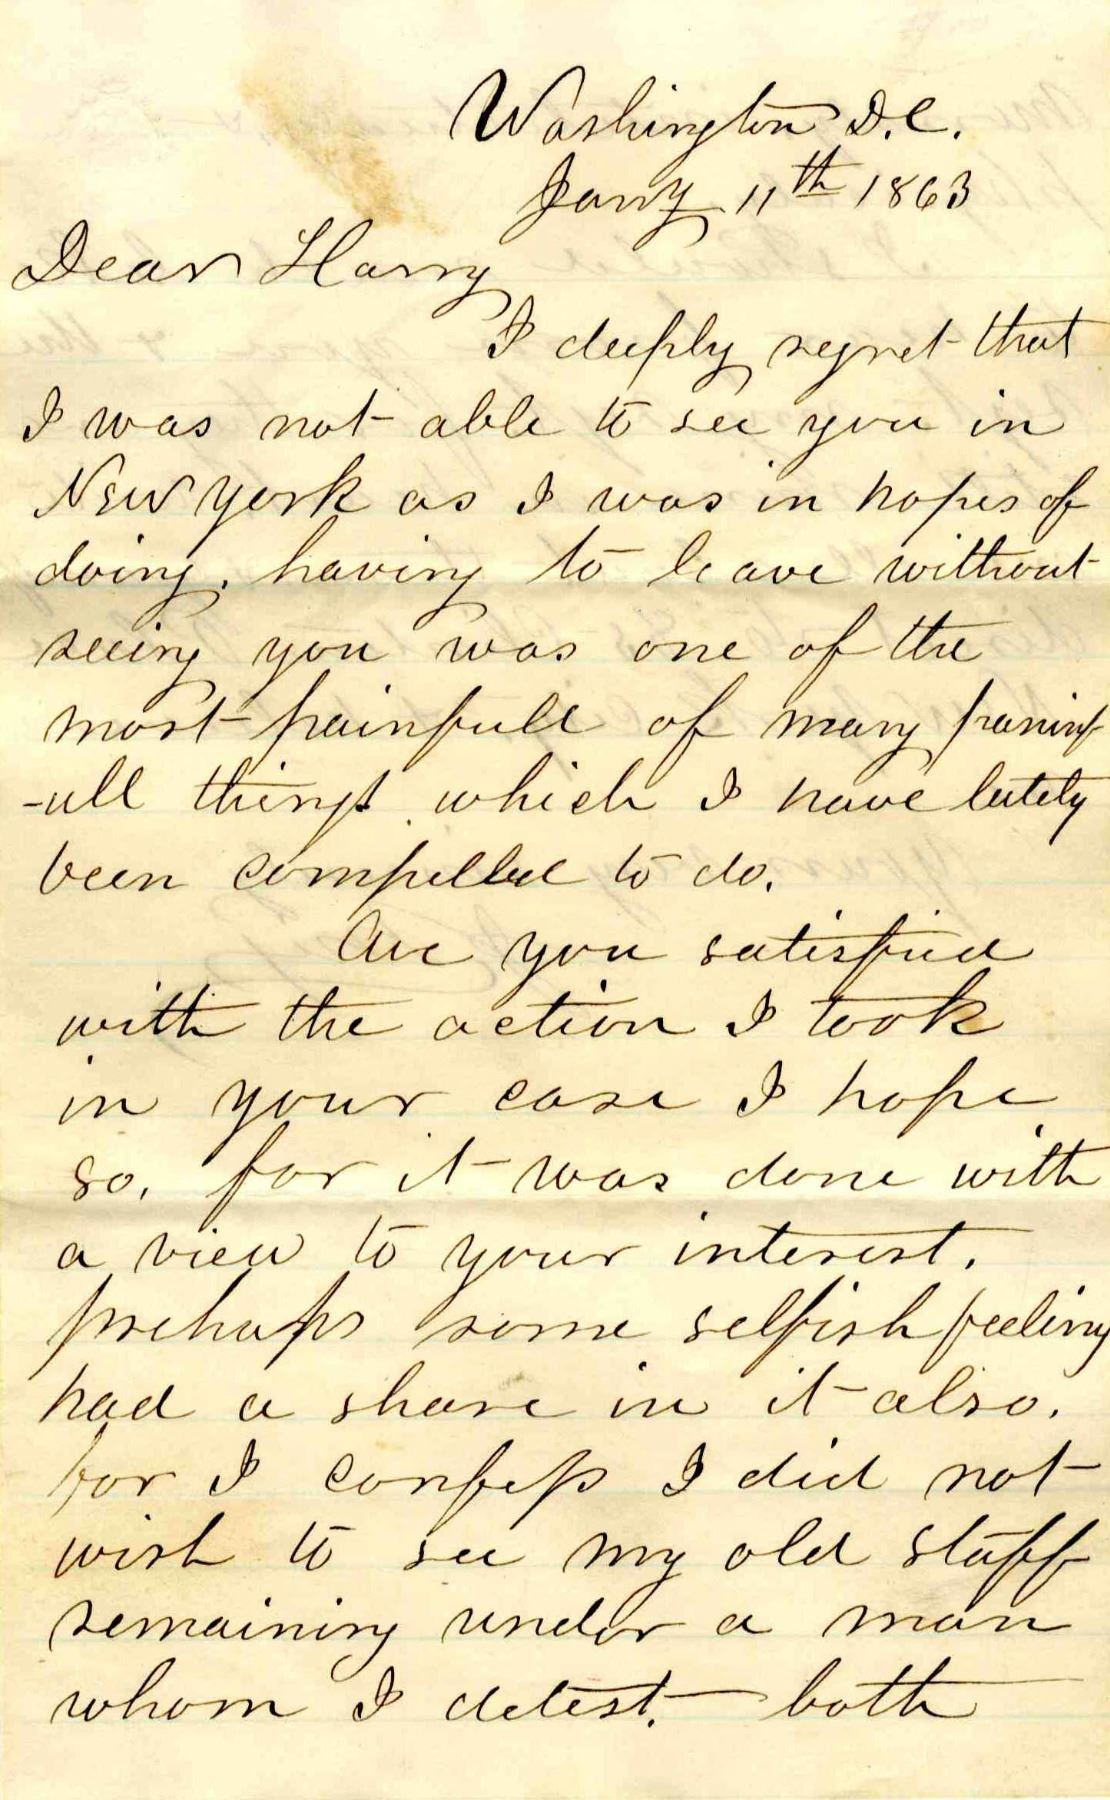 Washington D.C.
Jany 11th 1863
Dear Harry
I deeply regret that
I was not able to see you in
New York as I was in hopes of
doing. having to leave without
seeing you was one of the
most painfull of many painf
-ull things which I have lately
been compelled to do.
Are you satisfied
with the action I took
in your case I hope
so, for it was done with
a view to your interest.
perhaps some selfish feeling
had a share in it also.
for I confess I did not
wish to see my old staff
remaining under a man
whom I detest. both